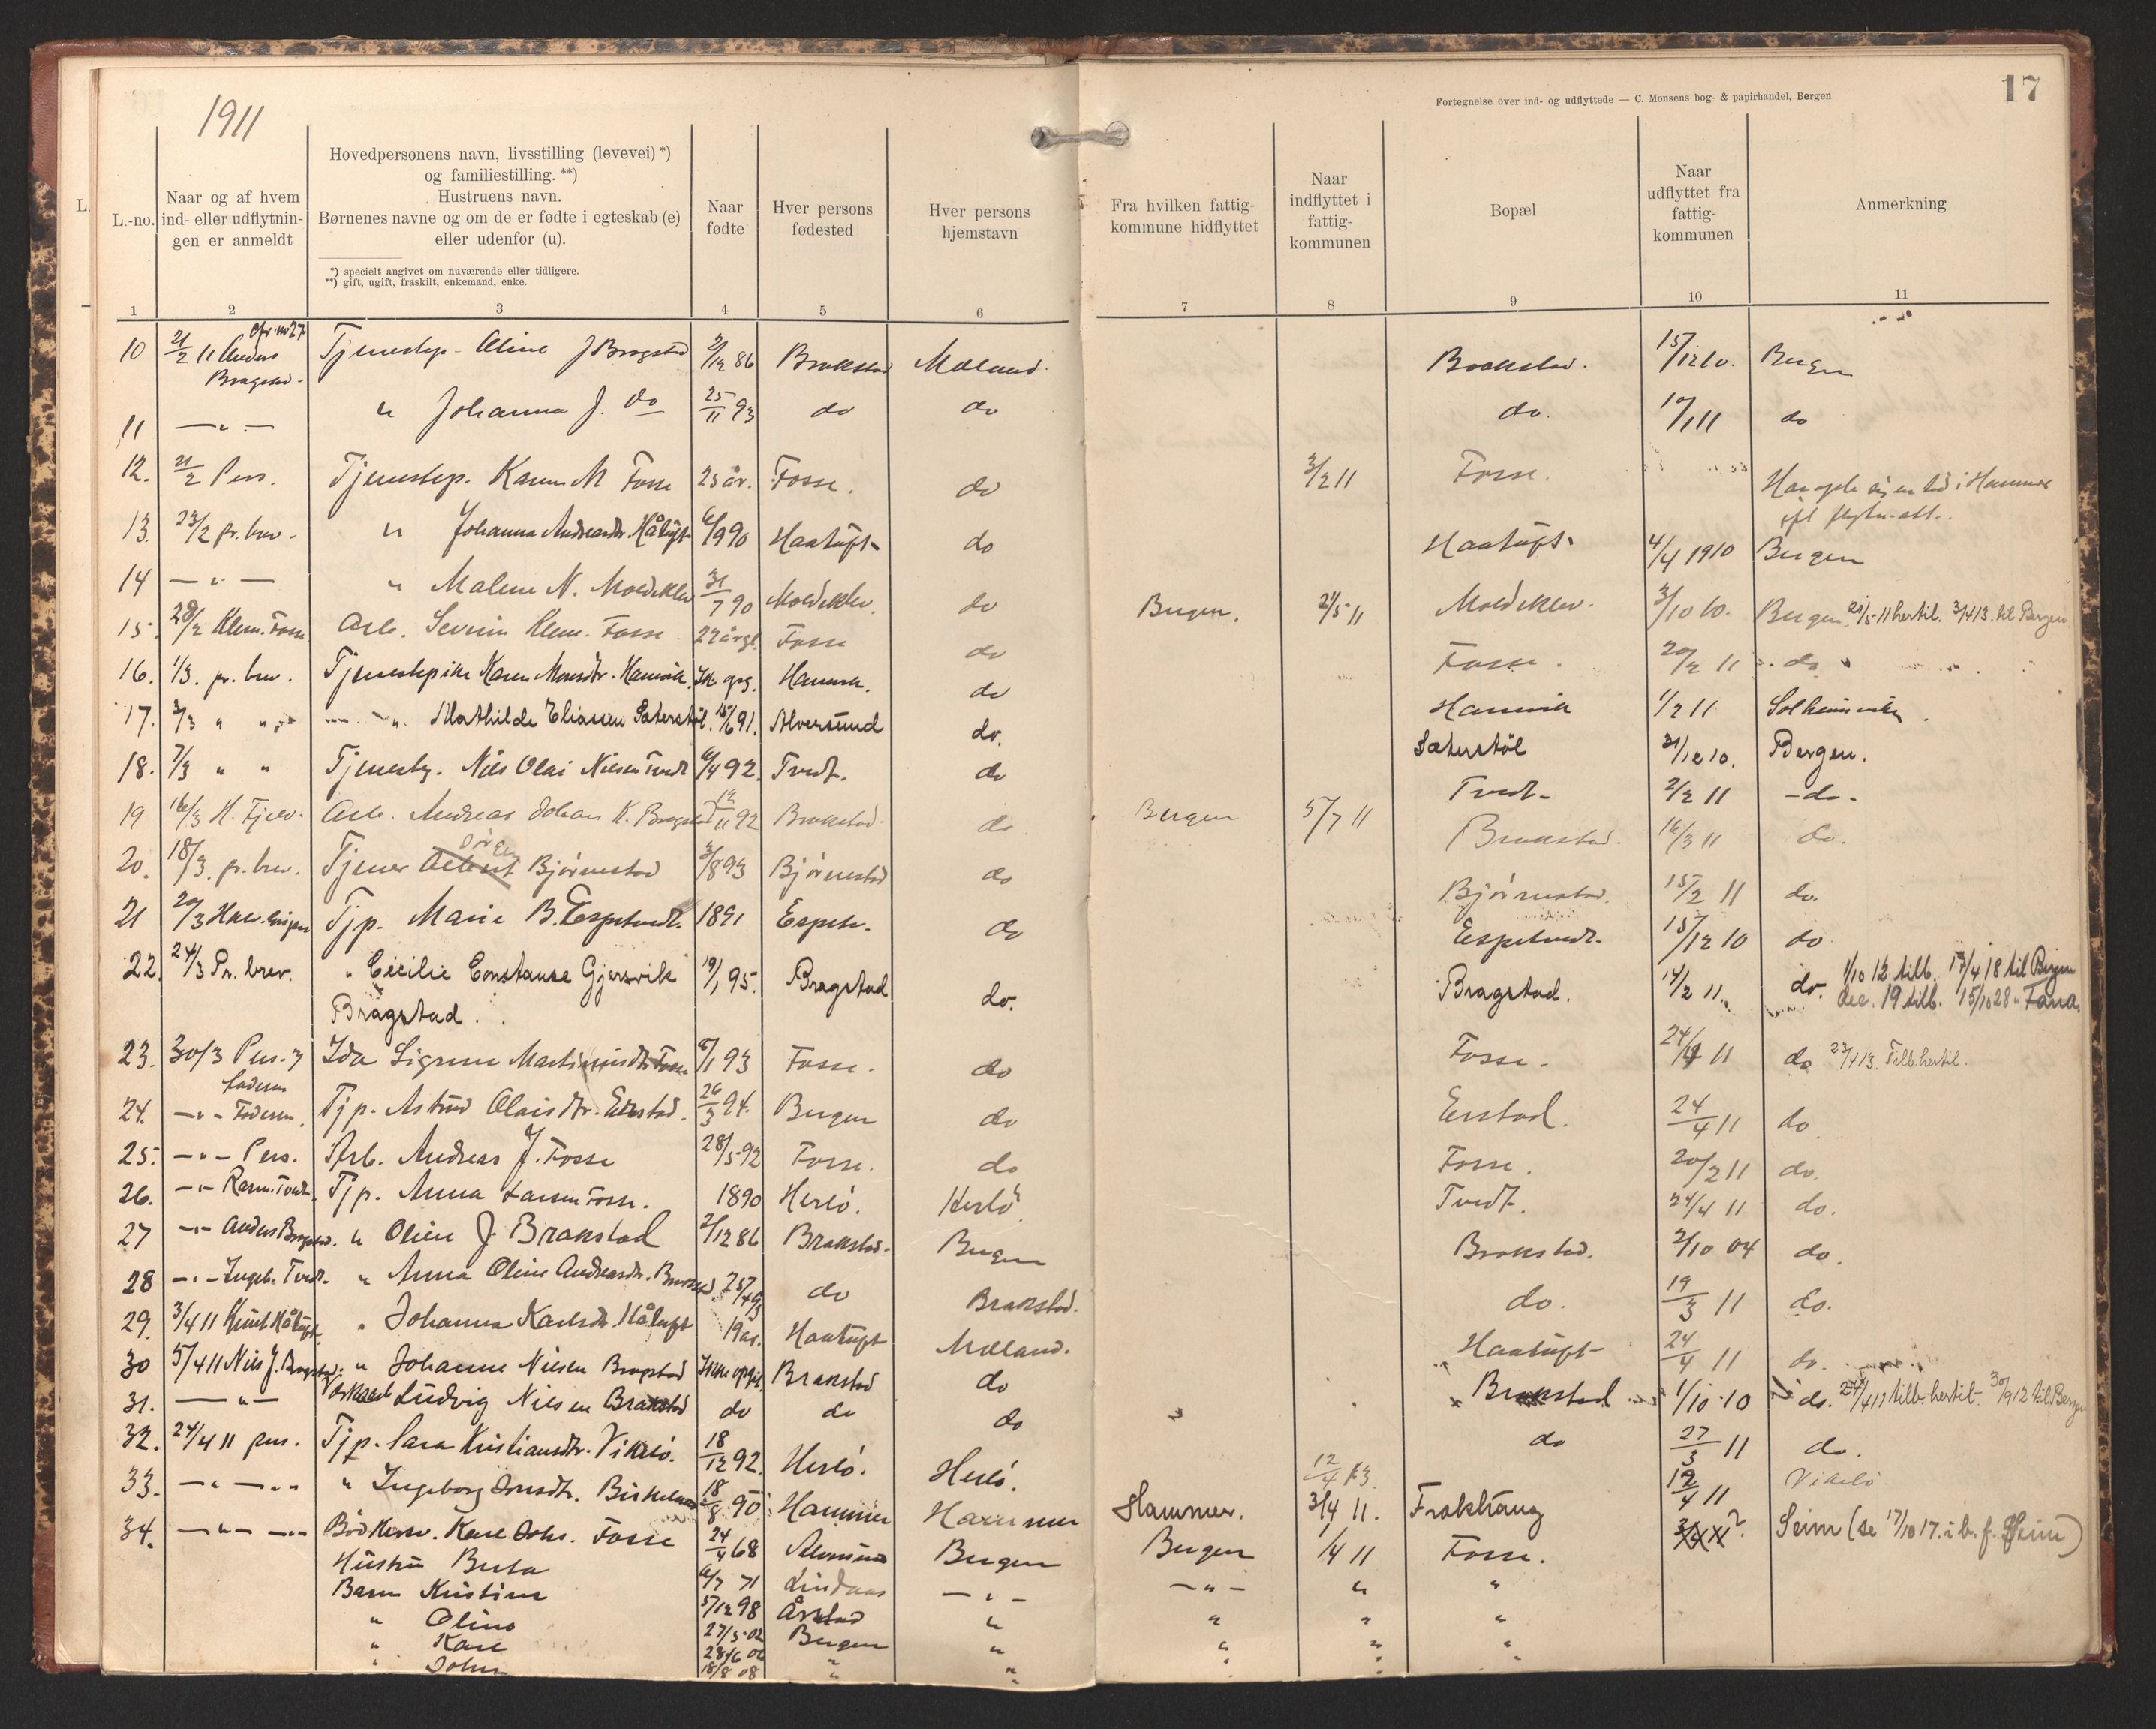 1911
17
Fortegnelse over ind- og udflyttede — C. Monsens bog- & papirhandel, Bergen
L.-no.
Naar og af hvem ind- eller udflytnin-gen er anmeldt
Hovedpersonens navn, livsstilling (levevei) *)
og familiestilling. **)
Hustruens navn.
Børnenes navne og om de er fødte i egteskab (e)
eller udenfor (u).
*) specielt angivet om nuværende eller tidligere.
**) gift, ugift, fraskilt, enkemand, enke.
Naar fødte
Hver persons fødested
Hver persons hjemstavn
Fra hvilken fattig-kommune hidflyttet
Naar indflyttet i fattig-kommunen
Bopæl
Naar udflyttet fra fattig-kommunen
Anmerkning
1 2 3 4 5 6 7 8 9 10 11
10 21/2 11 Anders Bragstad Oline J Bragstad 2/12 86 Brakstad Mæland Brakstad. 15/12 10. Bergen
11 — " — " Johanna J. do 25/11 93 do do do. do
12. 21/2 Pers. Tjenestep. Karen M Fosse 23 år. Fosse. do 3/2 11 Fosse.
13. 23/2 pr. brev. " Johanna Andreasdtr. Håtuft 6/9 90 Haatuft do Haatuft. 4/4 1910 Bergen
14 — " — " Malene N. Moldeklev 31/7 90 Moldeklev. do Bergen. 21/5 11 Moldeklev. 3/10 10. Bergen 21/5-11 hertil. 3/4 13. til Bergen
15. 28/2 Klem. Fosse Arb. Severin Klem. Fosse 22 årgl. Fosse do Fosse. 20/2 11 do
16. 1/3. pr. brev. Tjenestepike Karen Monsdtr. Hamvik. Hamvik. do Hamvik 1/2 11 Solheimsviken.
17. 3/3 " " " Mathilde Eliassen Sæterstöl. 15/6 91. Alversund do. Sæterstöl 31/12 10. Bergen.
18. 7/3 " " Nils Olai Nilsen Tvedt 6/4 92. Tvedt. do Tvedt 2/2 11 - do -
19 16/3 H. Fjelv. Arb. Andreas Johan K. Bragstad 12/11 92 Brakstad. do Bergen 5/7 11 Brakstad. 16/3 11 do.
20. 18/3. pr. brev. Tjener Bjørnestad 3/8 93 Bjørnestad do Bjørnestad. 15/2 11 do.
21 20/3 Tjp. Marie B. Espetvedt. 1891 Espetv. do Espetvedt. 15/12 10 do
22. 24/3 Pr. brev. " Cecilie Constanse Gjersvik 19/1 95. Bragstad do. Bragstad. 14/2 11. do. 1/10 12 tilb. 17/4 18 til Bergen
Bragstad. dec. 19 tilb. 15/10 28 " Fana
23. 30/3 Pers. Ida Sigrun Martinusdtr. Fosse 8/1 93 Fosse. do Fosse. 24/4 11 do 23/4 13. Tilb. hertil.
24. - " - Faderen. Tjp. Astrid Olaisdtr. Eirstad. 26/3 94. Bergen do Eirstad. 24/4 11 do.
25. - " - Pers. Arb. Andreas J. Fosse 28/5-92 Fosse. do Fosse. 20/2 11 do.
26. - " - Rasm. Tvedt. Tjp. Anna Larsen Fosse. 1890 Herlö. Herlö. Tvedt. 24/4 11 do.
27 - " - Anders Bragstad. " Oline J. Brakstad 2/12 86 Brakstad. Bergen Brakstad. 2/10 04 do.
28 - " - Ingeb. Tvedt. " Anna Oline Andreasdtr. Brakstad 25/4 93 do Brakstad. do. 19/3 11 do.
29. 3/4 11 Knut Håtuft " Johanna Karlsdtr. Håtuft 19 år. Haatuft Mæland. Haatuft 24/4 11 do.
30 5/4 11 Nils J. Bragstad. " Johanne Nilsen Bragstad Ikke opgit. Brakstad do Brakstad 1/10-10 do. 24/4 11 tilb. hertil. 30/9 12 til Bergen
31. — " — Ludvig Nilsen Brakstad do do do do 27/3 11 do.
32. 24/4 11 pers. Tjp. Sara Kristiansdtr. Vikelö. 18/12 92. Herlö. Herlö. 12/4 13. 12/4 11 Vikelö
33. - " - " - " Ingeborg 18/8 90 Hammer Hammer Hammer. 3/4 11. Frekhaug Seim (se 17/10 17. i b. f. Seim)
34. - " - " - Karl Johs. Fosse 24/4 68 Bergen Bergen 1/4 11 Fosse.
Hustru Berta 6/7 71 Lindaas - " - - " - " "
Barn Kristine 5/12 98 Årstad " " " "
" Olina 27/5-02 Bergen " " " "
" Karl 28/6 06 " " " " "
" Johs
18/8 08